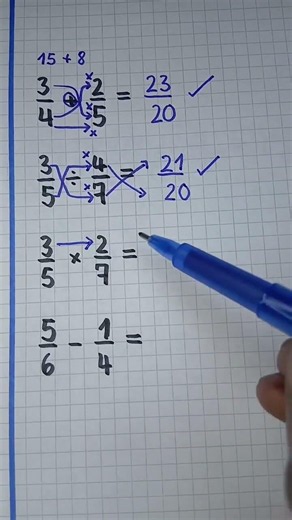 15 + 8
3/4 + 2/5 = 23/20 ✓
3/5 ÷ 4/7 = 21/20 ✓
3/5 × 2/7 =
5/6 - 1/4 =